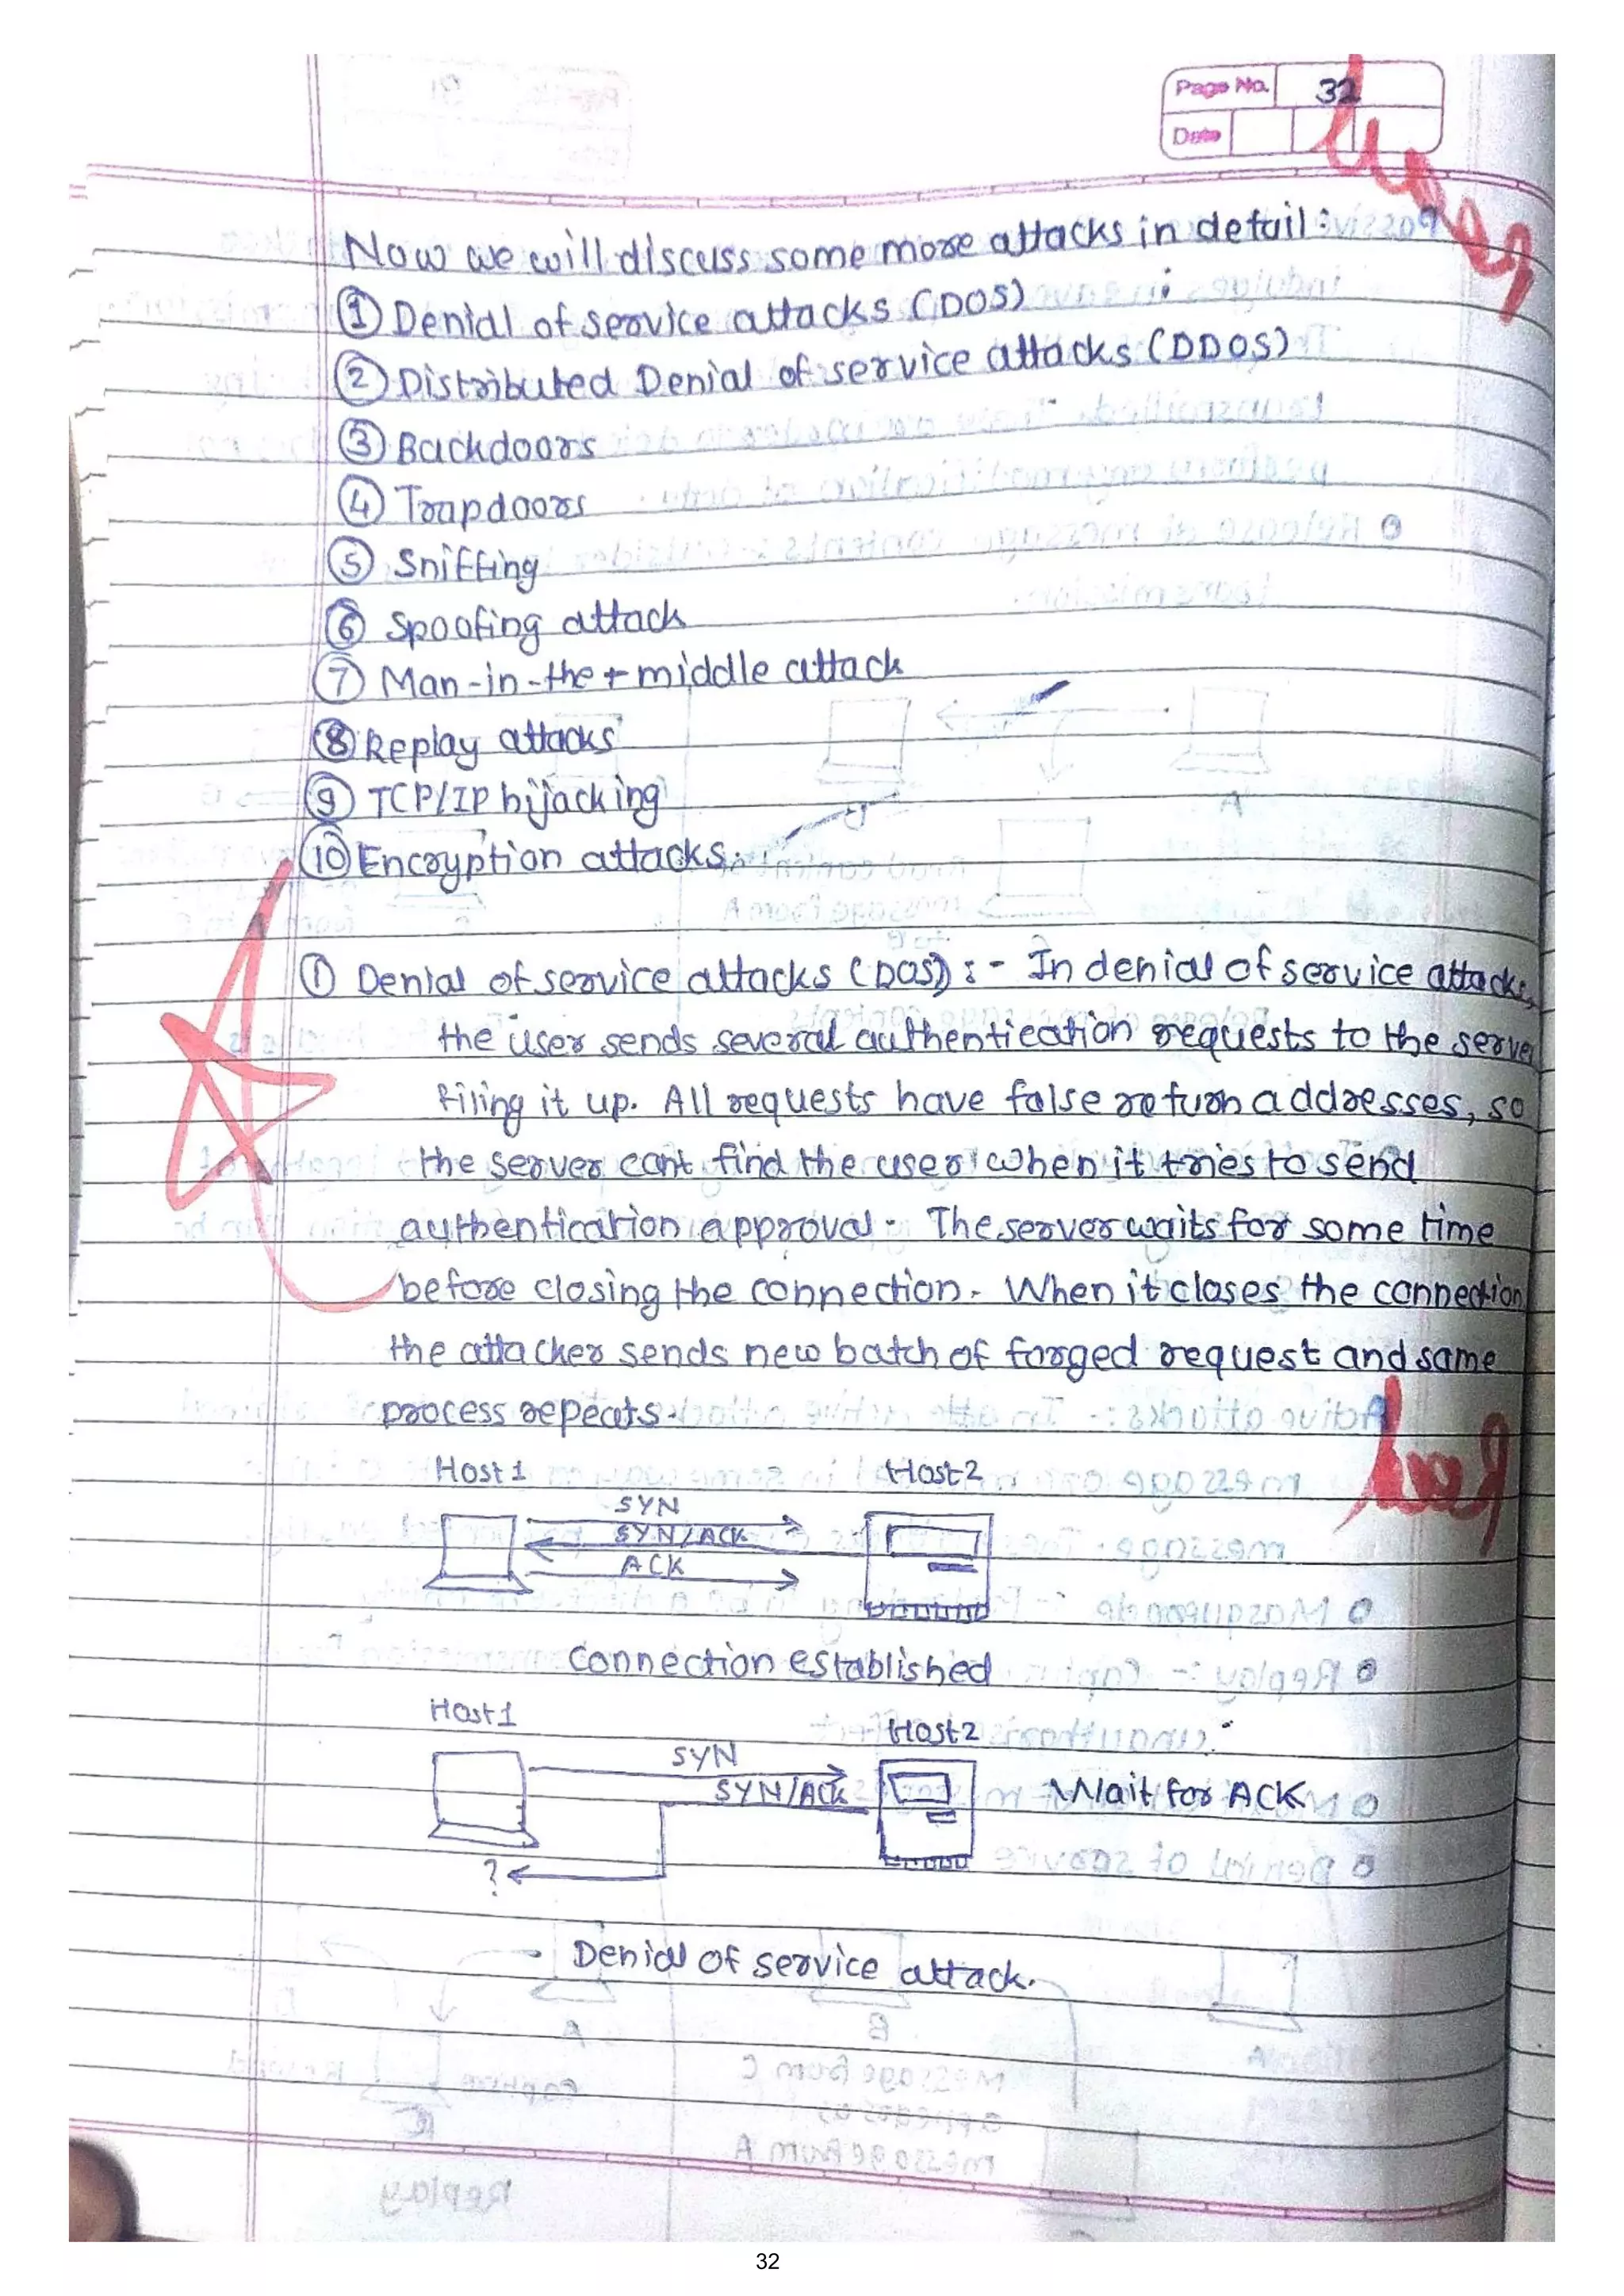 Page No. 32
Date
Now we will discuss some more attacks in detail:
① Denial of service attacks (DOS)
② Distributed Denial of service attacks (DDOS)
③ Backdoors
④ Trapdoors
⑤ Sniffing
⑥ Spoofing attack
⑦ Man-in-the-middle attack
⑧ Replay attacks
⑨ TCP/IP hijacking
⑩ Encryption attacks.
① Denial of service attacks (DOS) :- In denial of service attacks,
the user sends several authentication requests to the server
filing it up. All requests have false return addresses, so
the server cant find the user when it tries to send
authentication approval. The server waits for some time
before closing the connection. When it closes the connection
the attacker sends new batch of forged request and same
process repeats.
Host 1 Host 2
SYN
SYN/ACK
ACK
Connection established
Host 1 Host 2
SYN
SYN/ACK Wait for ACK
?
- Denial of service attack.
32